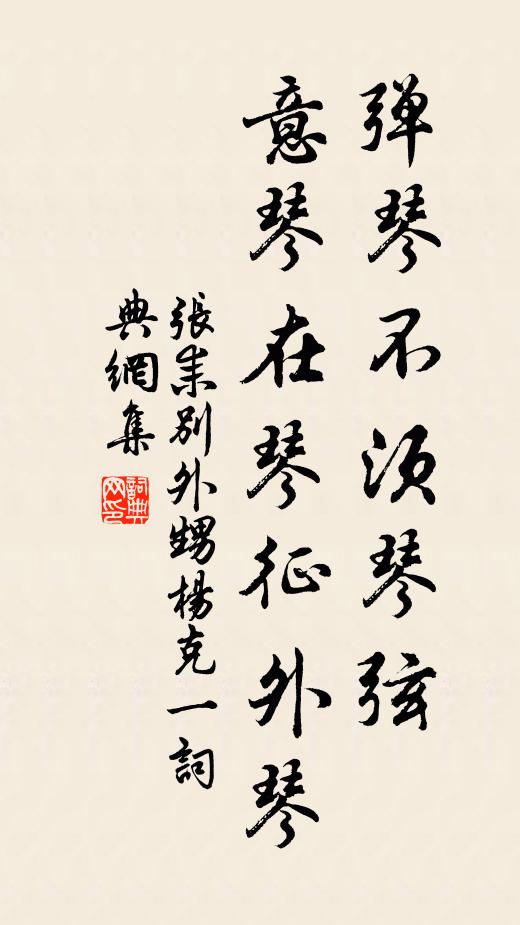 弹琴不须琴弦
意琴在琴征外琴
張耒別外甥楊克一詞
典網集
詞典网印